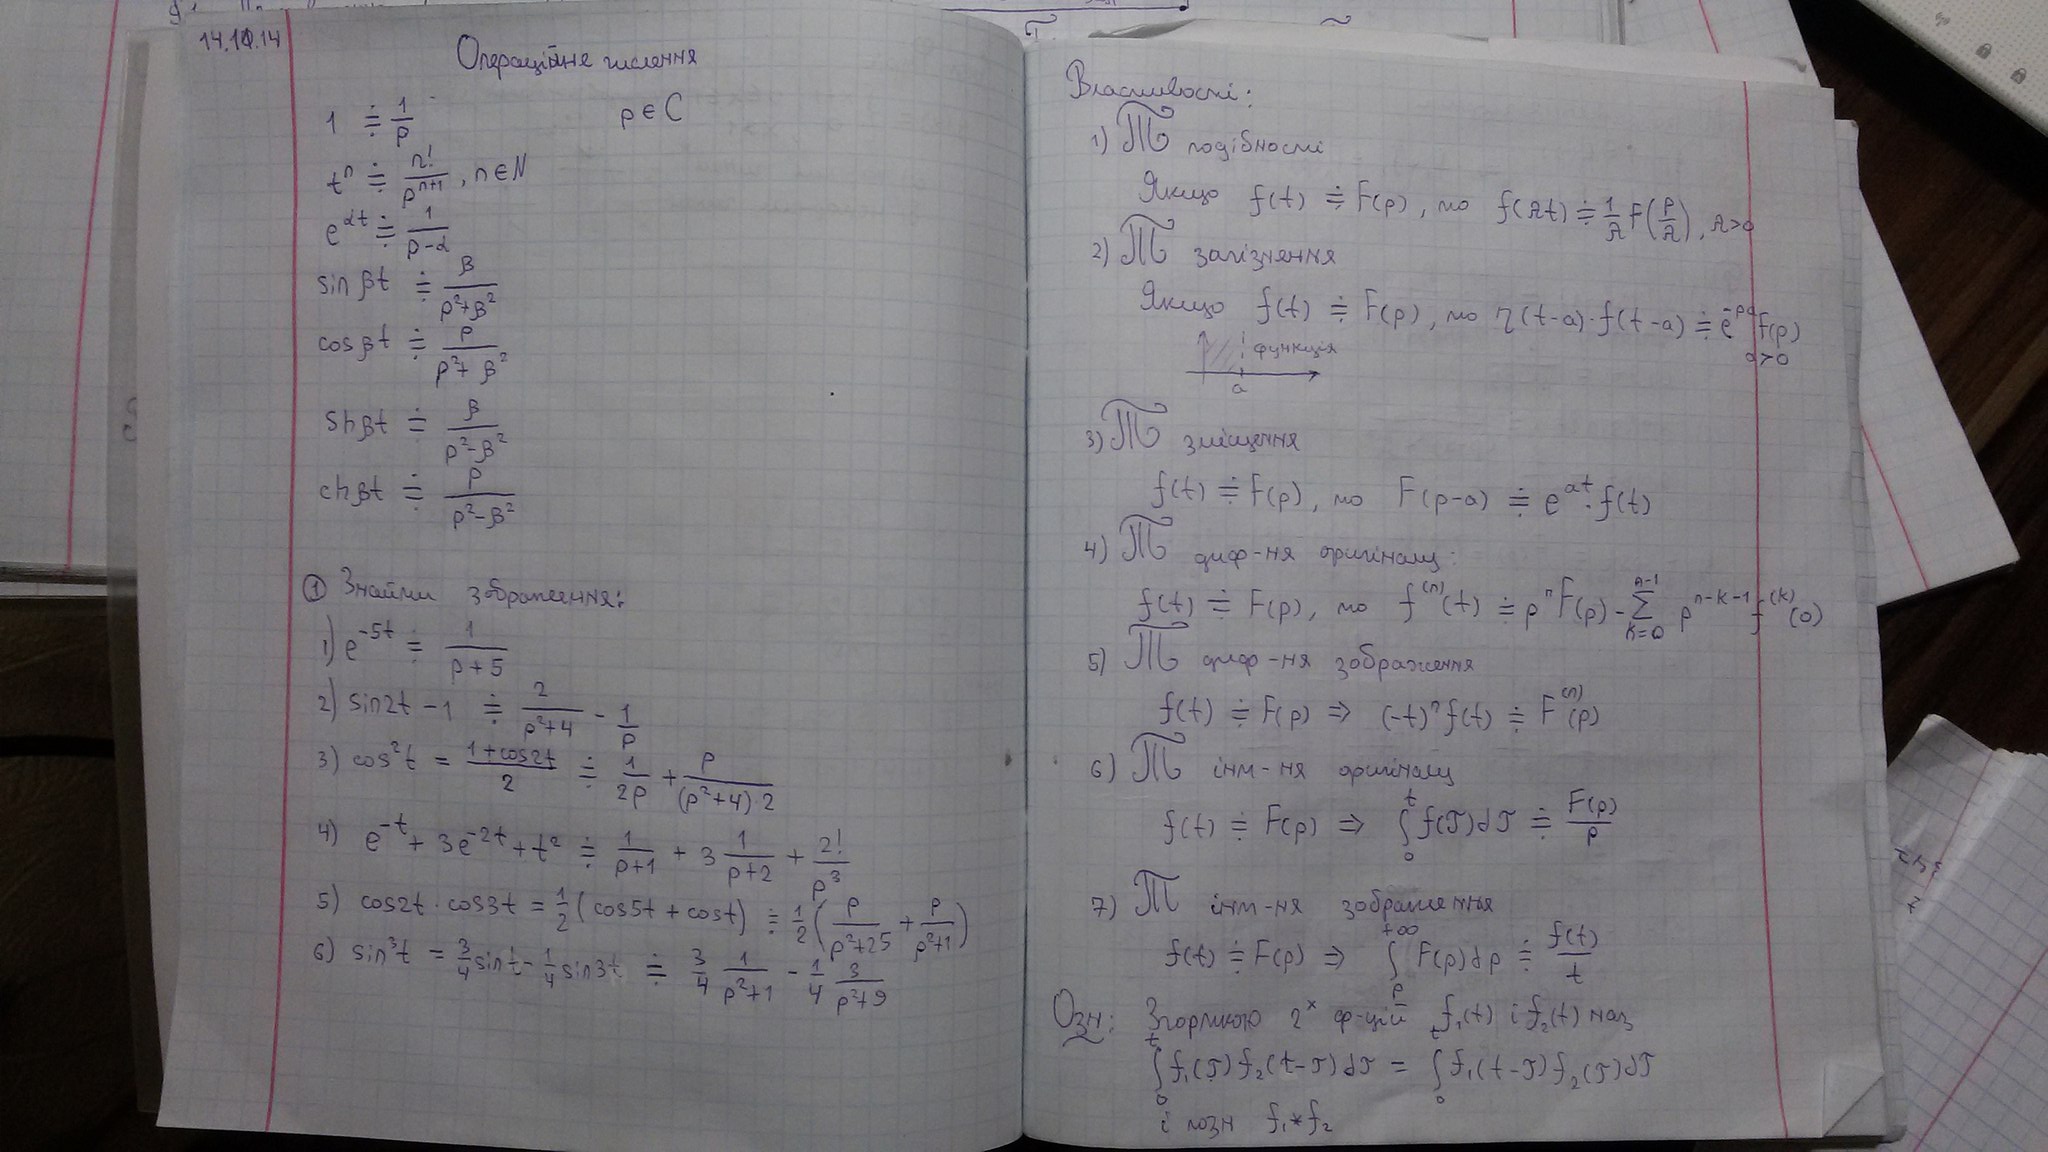 14.10.14
Операційне числення
1 ≑ 1/p p ∈ C
tⁿ ≑ n!/pⁿ⁺¹, n ∈ N
e^(αt) ≑ 1/(p-α)
sin βt ≑ β/(p²+β²)
cos βt ≑ p/(p²+β²)
sh βt ≑ β/(p²-β²)
ch βt ≑ p/(p²-β²)
① Знайти зображення:
1) e^(-5t) ≑ 1/(p+5)
2) sin2t - 1 ≑ 2/(p²+4) - 1/p
3) cos²t = (1+cos2t)/2 ≑ 1/(2p) + p/((p²+4)·2)
4) e^(-t) + 3e^(-2t) + t² ≑ 1/(p+1) + 3 1/(p+2) + 2!/p³
5) cos2t · cos3t = 1/2 (cos5t + cost) ≑ 1/2 (p/(p²+25) + p/(p²+1))
6) sin³t = 3/4 sint - 1/4 sin3t ≑ 3/4 1/(p²+1) - 1/4 3/(p²+9)
Властивості:
1) Т подібності
Якщо f(t) ≑ F(p), то f(At) ≑ 1/A F(p/A), A>0
2) Т запізнення
Якщо f(t) ≑ F(p), то η(t-a)·f(t-a) ≑ e^(-pa) F(p)
a>0
функція
a
3) Т зміщення
f(t) ≑ F(p), то F(p-a) ≑ e^(at)·f(t)
4) Т диф-ня оригіналу:
f(t) ≑ F(p), то f⁽ⁿ⁾(t) ≑ pⁿF(p) - ∑_(k=0)^(n-1) p^(n-k-1) f^(k)(0)
5) Т диф-ня зображення
f(t) ≑ F(p) ⇒ (-t)ⁿf(t) ≑ F⁽ⁿ⁾(p)
6) Т інт-ня оригіналу
f(t) ≑ F(p) ⇒ ∫₀^t f(τ)dτ ≑ F(p)/p
7) Т інт-ня зображення
f(t) ≑ F(p) ⇒ ∫_p^(+∞) F(p)dp ≑ f(t)/t
Озн: Згорткою 2ˣ ф-цій f₁(t) і f₂(t) наз
∫₀^t f₁(τ)f₂(t-τ)dτ = ∫₀^t f₁(t-τ)f₂(τ)dτ
і позн f₁*f₂